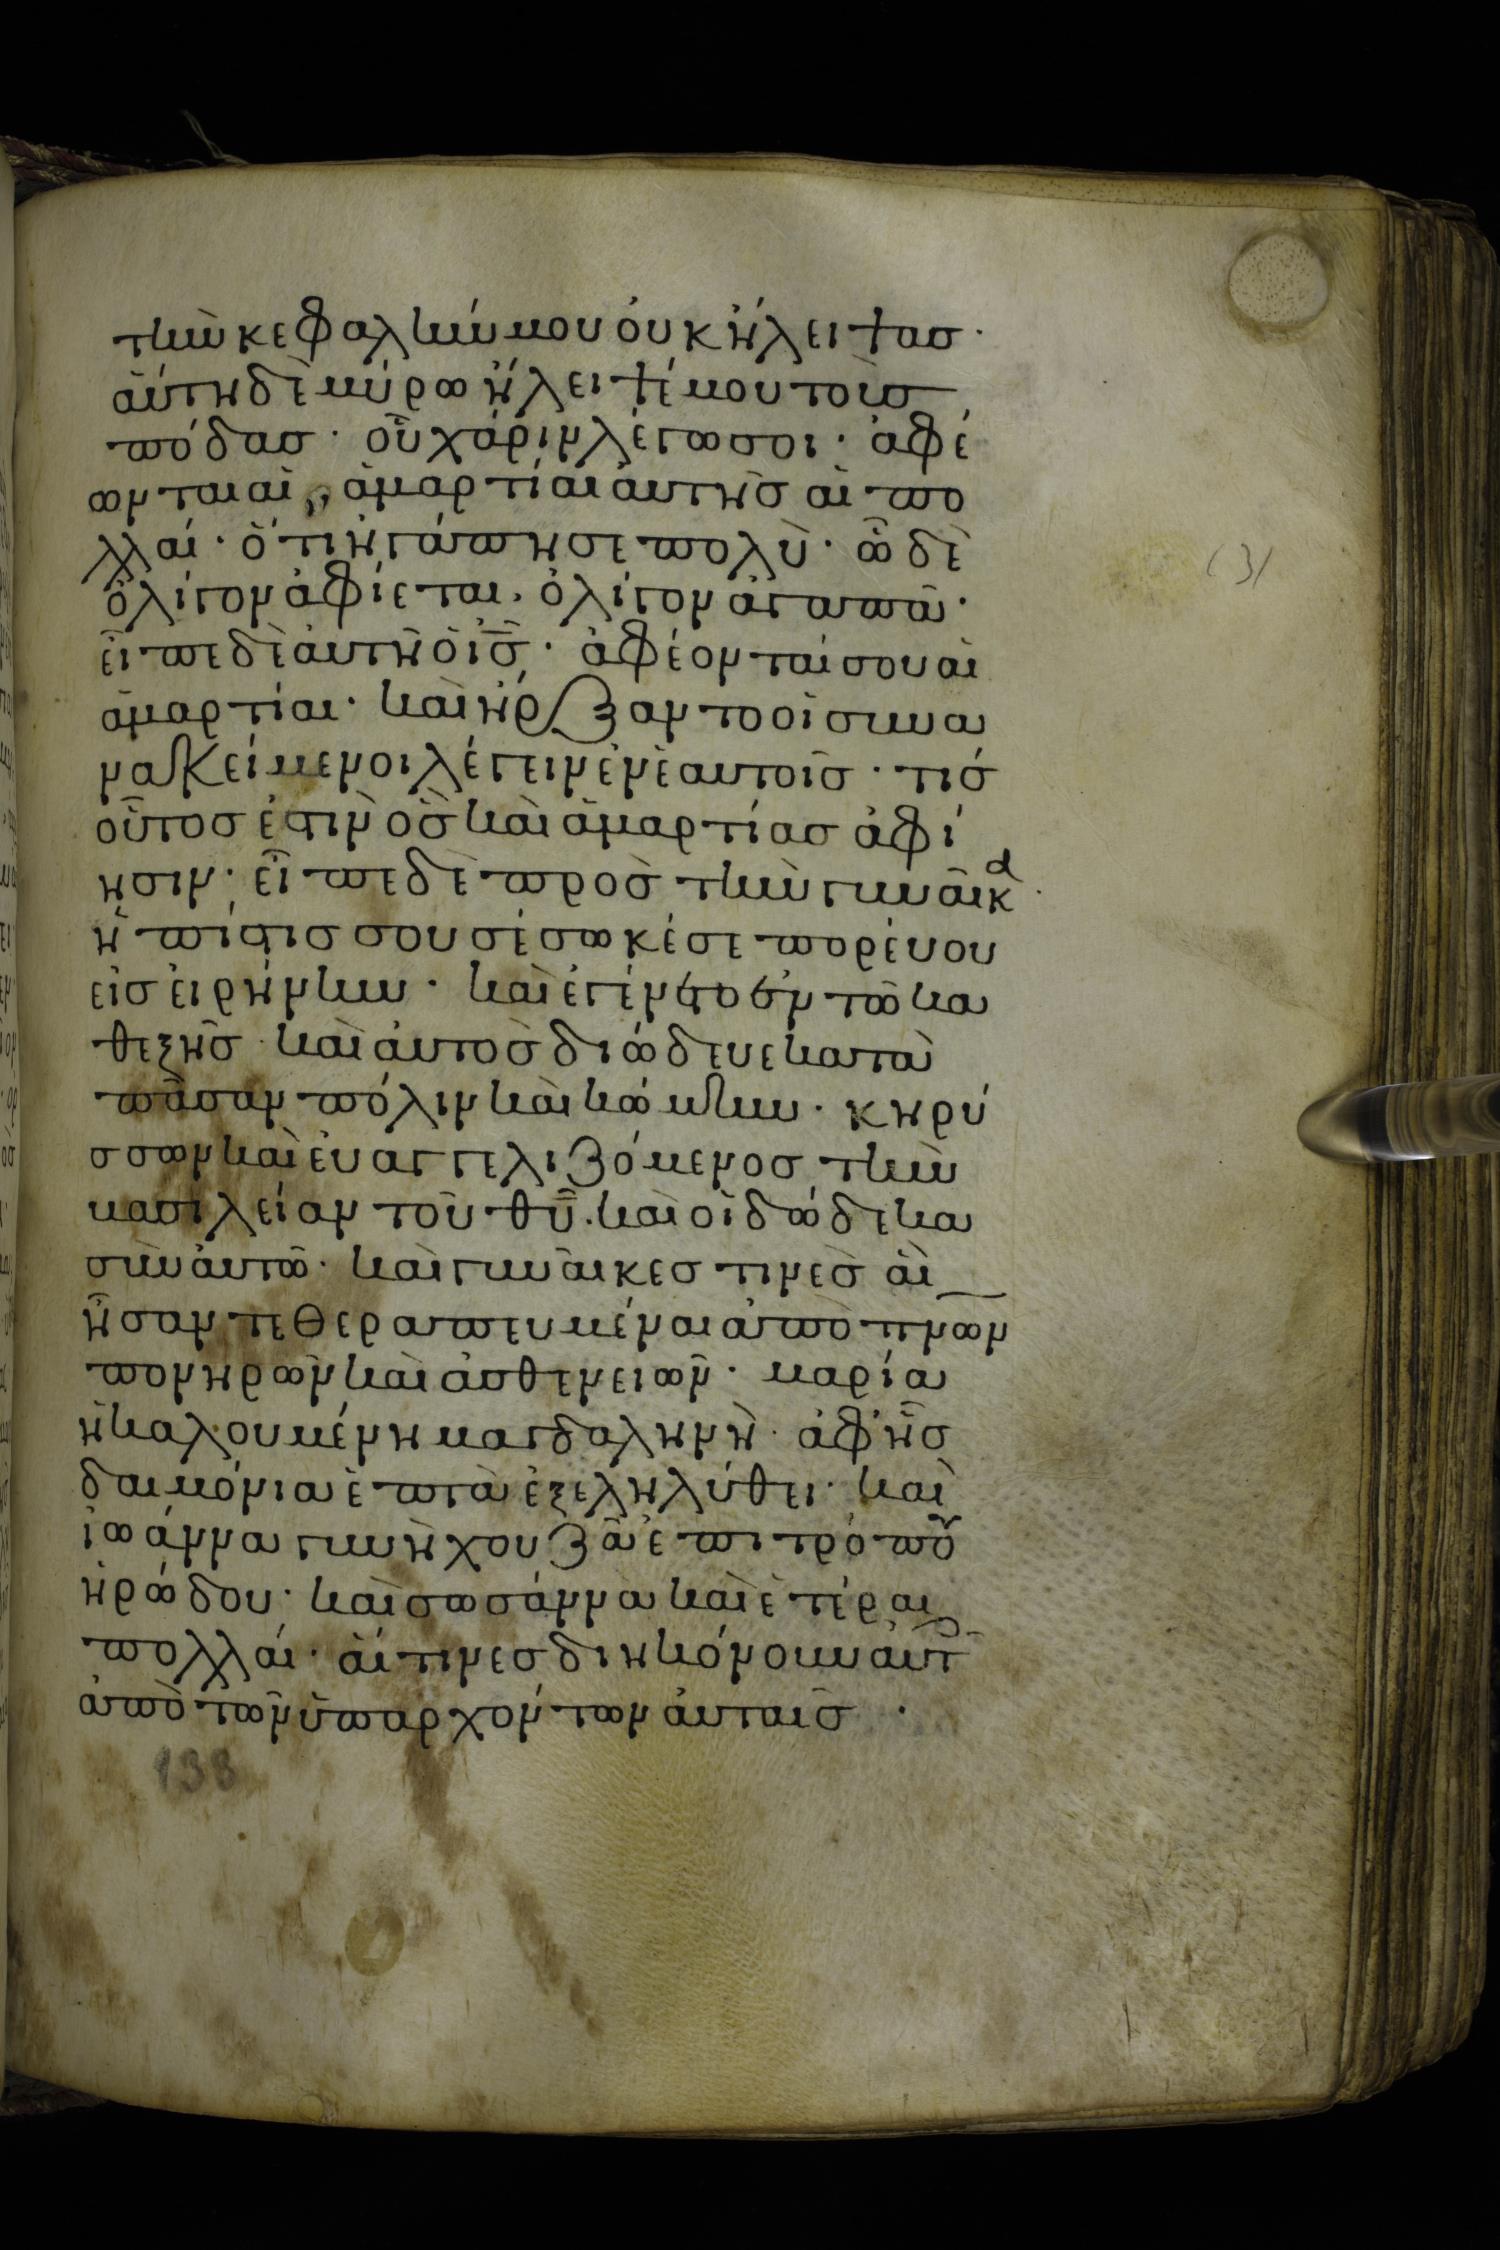 τὴν κεφαλήν μου ὀυκ ἤλειψας·
ἁύτη δὲ μύρω ἤλειψέ μου τοὺς
πόδας· οὗ χάριν λέγω σοι· ἀφέ
ωνται αἱ ἁμαρτίαι ἀυτῆς αἱ πο
λλαί· ὅτι ἠγάπησε πολὺ· ὧ δὲ
ὀλίγον ἀφίεται, ὀλίγον ἀγαπᾶ·
εἶπε δὲ ἀυτῆ ὁ ις̅· ἀφέονταί σου αἱ
ἁμαρτίαι· καὶ ἤρξαντο οἱ συνα
νακείμενοι λέγειν ἐν ἑαυτοῖς· τίς
οὗτος ἐστιν ὃς καὶ ἁμαρτίας ἀφί
ησιν· εἶπε δὲ πρὸς τὴν γυναῖκα·
ἡ πίστις σου σέσωκέ σε πορέυου
εἰς εἰρήνην· καὶ ἐγένετο ἐν τῶ κα
θεξῆς καὶ ἀυτὸς διώδευε κατὰ
πᾶσαν πόλιν καὶ κώμην· κηρύ
σσων καὶ ἐυαγγελιζόμενος τὴν
βασιλείαν τοῦ θυ̅· καὶ οἱ δώδεκα
σὺν ἀυτῶ· καὶ γυναῖκες τινὲς ἁὶ
ἦσαν τεθεραπευμέναι ἀπὸ πνων
πονηρῶν καὶ ἀσθενειῶν· μαρία
ἡ καλουμένη μαγδαληνὴ· ἀφ' ἧς
δαιμόνια ἑπτὰ ἐξεληλύθει· καὶ
ἰωάννα γυνὴ χουζᾶ ἐπιτρόπου
ἡρώδου· καὶ σωσάννα καὶ ἑτέραι
πολλαί· ἅιτινες διηκόνουν ἀυτ
ἀπὸ τῶν ὑπαρχόντων ἀυταῖς·
138
131